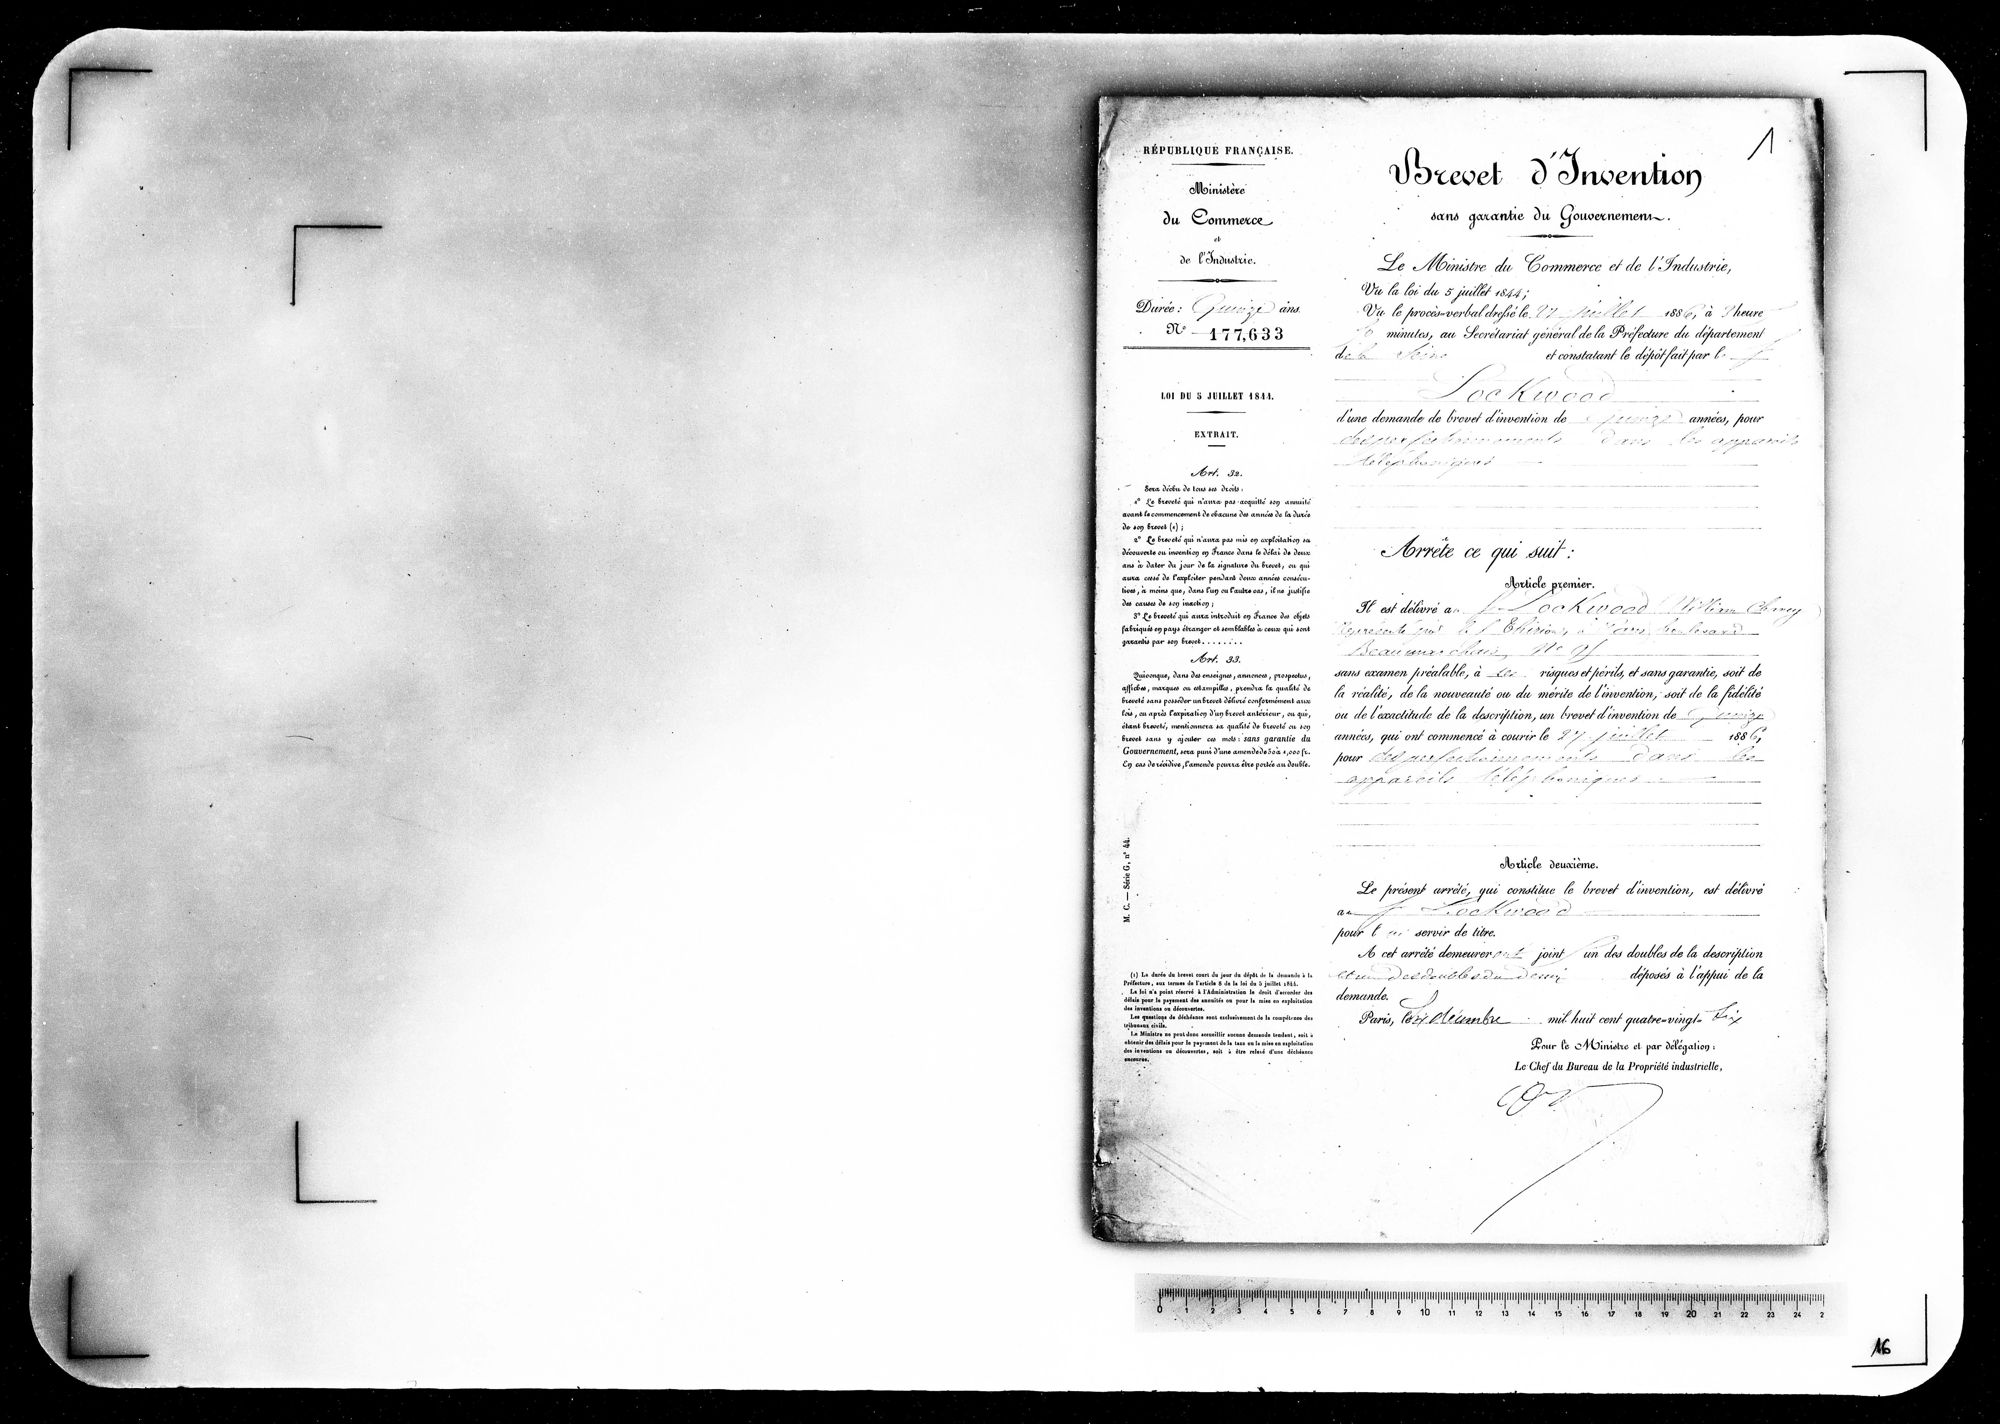 RÉPUBLIQUE FRANÇAISE.
Ministère
du Commerce
et
de l'Industrie.
Durée : Quinze ans.
N° 177,633
LOI DU 5 JUILLET 1844.
EXTRAIT.
Art. 32.
Sera déchu de tous ses droits :
1° Le breveté qui n'aura pas acquitté son annuité
avant le commencement de chacune des années de la durée
de son brevet (1) ;
2° Le breveté qui n'aura pas mis en exploitation sa
découverte ou invention en France dans le délai de deux
ans à dater du jour de la signature du brevet, ou qui
aura cessé de l'exploiter pendant deux années consécu-
tives, à moins que, dans l'un ou l'autre cas, il ne justifie
des causes de son inaction ;
3° Le breveté qui aura introduit en France des objets
fabriqués en pays étranger et semblables à ceux qui sont
garantis par son brevet.......
Art. 33.
Quiconque, dans des enseignes, annonces, prospectus,
affiches, marques ou estampilles, prendra la qualité de
breveté sans posséder un brevet délivré conformément aux
lois, ou après l'expiration d'un brevet antérieur, ou qui,
étant breveté, mentionnera sa qualité de breveté ou son
brevet sans y ajouter ces mots : sans garantie du
Gouvernement, sera puni d'une amende de 50 à 1,000 fr.
En cas de récidive, l'amende pourra être portée au double.
M. C. — Série G, n° 44.
(1) La durée du brevet court du jour du dépôt de la demande à la
Préfecture, aux termes de l'article 8 de la loi du 5 juillet 1844.
La loi n'a point réservé à l'Administration le droit d'accorder des
délais pour le payement des annuités ou pour la mise en exploitation
des inventions ou découvertes.
Les questions de déchéance sont exclusivement de la compétence des
tribunaux civils.
Le Ministre ne peut donc accueillir aucune demande tendant, soit à
obtenir des délais pour le payement de la taxe ou la mise en exploitation
des inventions ou découvertes, soit à être relevé d'une déchéance
encourue.
1
Brevet d'Invention
sans garantie du Gouvernement.
Le Ministre du Commerce et de l'Industrie,
Vu la loi du 5 juillet 1844 ;
Vu le procès-verbal dressé le 27 juillet 1886, à heure
minutes, au Secrétariat général de la Préfecture du département
de la Seine et constatant le dépôt fait par le S.
Lockwood
d'une demande de brevet d'invention de quinze années, pour
des perfectionnements dans les appareils
téléphoniques
Arrête ce qui suit :
Article premier.
Il est délivré au S. Lockwood William
Représenté par Thirion, à Paris, boulevard
Beaumarchais, N° 95
sans examen préalable, à ses risques et périls, et sans garantie, soit de
la réalité, de la nouveauté ou du mérite de l'invention, soit de la fidélité
ou de l'exactitude de la description, un brevet d'invention de quinze
années, qui ont commencé à courir le 27 juillet 1886,
pour des perfectionnements dans les
appareils téléphoniques
Article deuxième.
Le présent arrêté, qui constitue le brevet d'invention, est délivré
au S. Lockwood
pour lui servir de titre.
A cet arrêté demeureront joints un des doubles de la description
et un des doubles du dessin déposés à l'appui de la
demande.
Paris, le six décembre mil huit cent quatre-vingt-six
Pour le Ministre et par délégation :
Le Chef du Bureau de la Propriété industrielle,
0 1 2 3 4 5 6 7 8 9 10 11 12 13 14 15 16 17 18 19 20 21 22 23 24 2
16